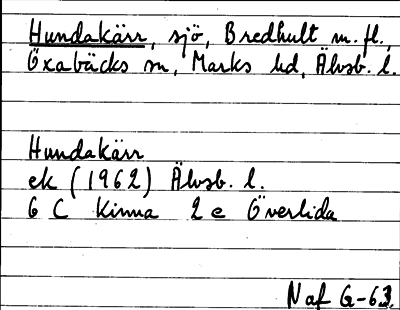 Hundakärr, sjö, Bredhult m. fl.,
Öxabäcks sn, Marks hd, Älvsb. l.
Hundakärr
ek (1962) Älvsb. l.
6 C Kinna 2 e Överlida
Naf G-63.